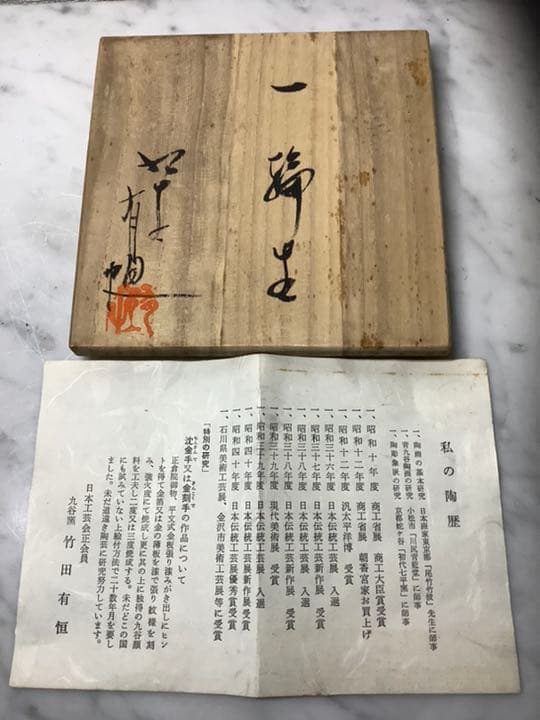 一輪生
九谷
有恒
私の陶歴
一、陶画の基本研究 日本画家東京都「尾竹竹坡」先生に師事
一、青九谷陶画の研究 小松市「川尻青龍堂」に師事
一、陶彫象嵌の研究 京都蛇ケ谷「初代七平窯」に師事
一、昭和十年度 商工省展 商工大臣賞受賞
一、昭和十二年度 商工省展 朝香宮家お買上げ
一、昭和十二年度 汎太平洋博 受賞
一、昭和三十六年度 日本伝統工芸展 入選
一、昭和三十七年度 日本伝統工芸新作展 受賞
一、昭和三十八年度 日本伝統工芸展 入選
一、昭和三十八年度 日本伝統工芸新作展 受賞
一、昭和三十九年度 現代美術展 受賞
一、昭和三十九年度 日本伝統工芸展 入選
一、昭和四十年度 日本伝統工芸展新作展受賞
一、昭和四十年度 日本伝統工芸展優秀賞受賞
一、石川県美術工芸展、金沢市美術工芸展等に受賞
「特別の研究」
沈金手又は金刻手の作品について
正倉院御物、平文式金板張り漆みがき出しにヒン
トを得て金箔又は金の薄板を漆で張り紋様を刻
み、強火度にて焼成し更に其の上に独得の九谷顔
料を工夫し二度又は三度焼成する。未だどこの国
にも試みていない上絵付方法で二十数年月を要し
ました。未だ道遠き陶芸に研究努力しています。
日本工芸会正会員
九谷窯 竹田有恒